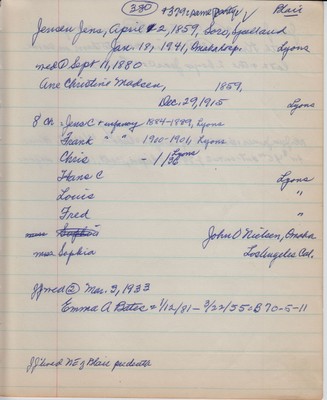 (380) + 379 same party √ Blair
Jensen Jens, April 2, 1859, Soro, Sjælland
Jan. 18, 1941, Lyons
med ① Sept 11, 1880
Ane Christine Madsen, 1859,
Dec. 29, 1915 Lyons
8 Ch: Jens C + infancy 1884-1889, Lyons
Frank " " 1900-1901, Lyons
Chris - 11/36 Lyons
Hans C Lyons
Louis "
Fred "
mrs Sophia John O Nielsen, Omaha
mrs Sophia Los Angeles Cal.
JJ med ② Mar. 3, 1933
Emma A 1/12/81 - 2/22/55 = B 70-5-11
JJ lived NE of Blair